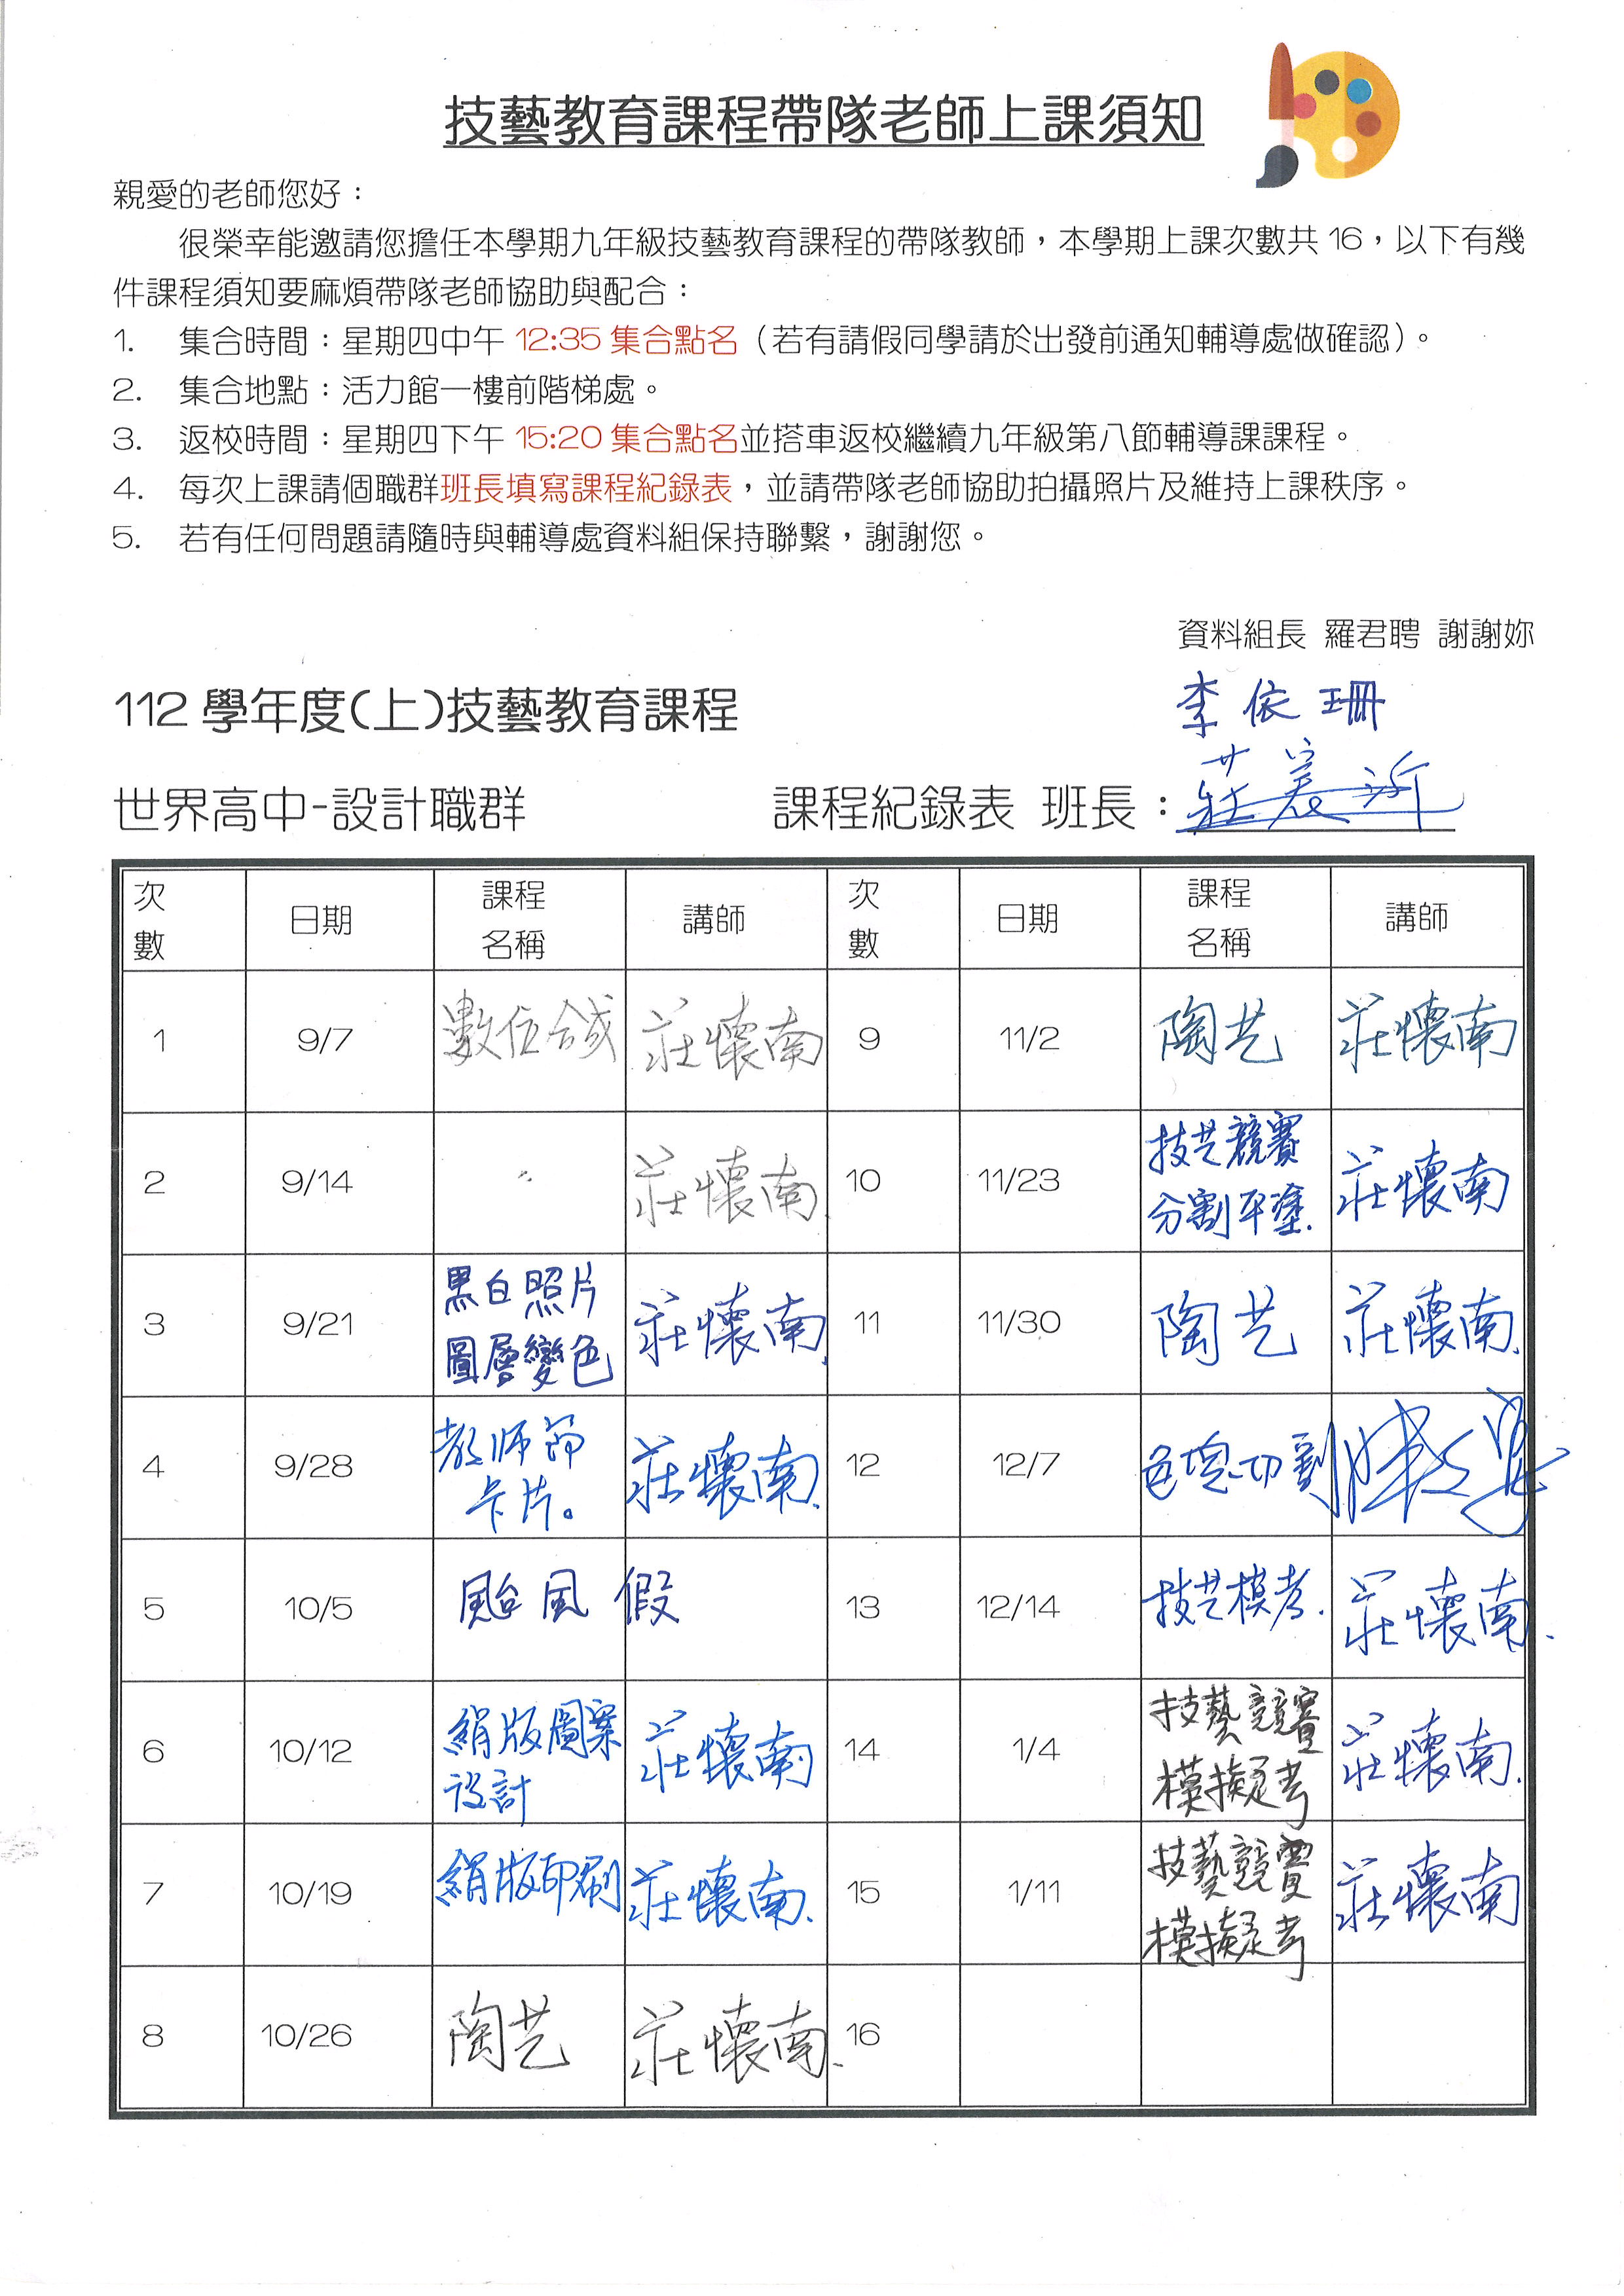 技藝教育課程帶隊老師上課須知
親愛的老師您好：
很榮幸能邀請您擔任本學期九年級技藝教育課程的帶隊教師，本學期上課次數共 16，以下有幾
件課程須知要麻煩帶隊老師協助與配合：
1. 集合時間：星期四中午 12:35 集合點名（若有請假同學請於出發前通知輔導處做確認）。
2. 集合地點：活力館一樓前階梯處。
3. 返校時間：星期四下午 15:20 集合點名並搭車返校繼續九年級第八節輔導課課程。
4. 每次上課請個職群班長填寫課程紀錄表，並請帶隊老師協助拍攝照片及維持上課秩序。
5. 若有任何問題請隨時與輔導處資料組保持聯繫，謝謝您。
資料組長 羅君聘 謝謝妳
李依珊
112 學年度(上)技藝教育課程
世界高中-設計職群 課程紀錄表 班長：
次數 日期 課程名稱 講師 次數 日期 課程名稱 講師
1 9/7 數位合成 莊懷南 9 11/2 陶艺 莊懷南
2 9/14 〃 莊懷南. 10 11/23 技艺競賽 分割平塗. 莊懷南
3 9/21 黑白照片 圖層變色 莊懷南. 11 11/30 陶艺 莊懷南.
4 9/28 教師節 卡片。 莊懷南. 12 12/7 色塊切割
5 10/5 颱風假 13 12/14 技艺模考. 莊懷南.
6 10/12 絹版圖案 設計 莊懷南 14 1/4 技藝競賽 模擬考 莊懷南.
7 10/19 絹版印刷 莊懷南. 15 1/11 技藝競賽 模擬考 莊懷南
8 10/26 陶艺 莊懷南. 16